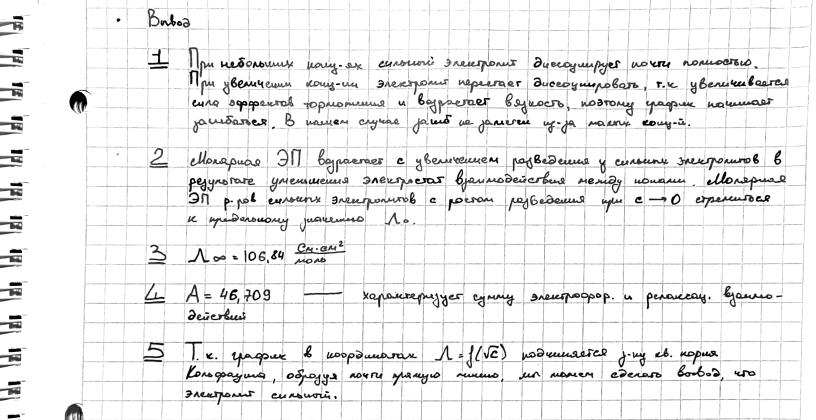 • Вывод
1 При небольших конц-ях сильный электролит диссоциирует почти полностью.
При увеличении конц-ии электролит перестает диссоциировать, т.к увеличивается
сила эффектов торможения и возрастает вязкость, поэтому график начинает
загибаться. В нашем случае загиб не заметен из-за малых конц-й.
2 Молярная ЭП возрастает с увеличением разведения у сильных электролитов в
результате уменьшения электростат взаимодействия между ионами. Молярная
ЭП р-ров сильных электролитов с ростом разведения при c → 0 стремиться
к предельному значению Λ₀.
3 Λ∞ = 106,84 См·см²/моль
4 A = 46,709 — характеризует сумму электрофор. и релаксац. взаимо-
действий
5 Т.к. график в координатах Λ = f(√c) подчиняется з-ну кв. корня
Кольрауша, образуя почти прямую линию, мы можем сделать вывод, что
электролит сильный.